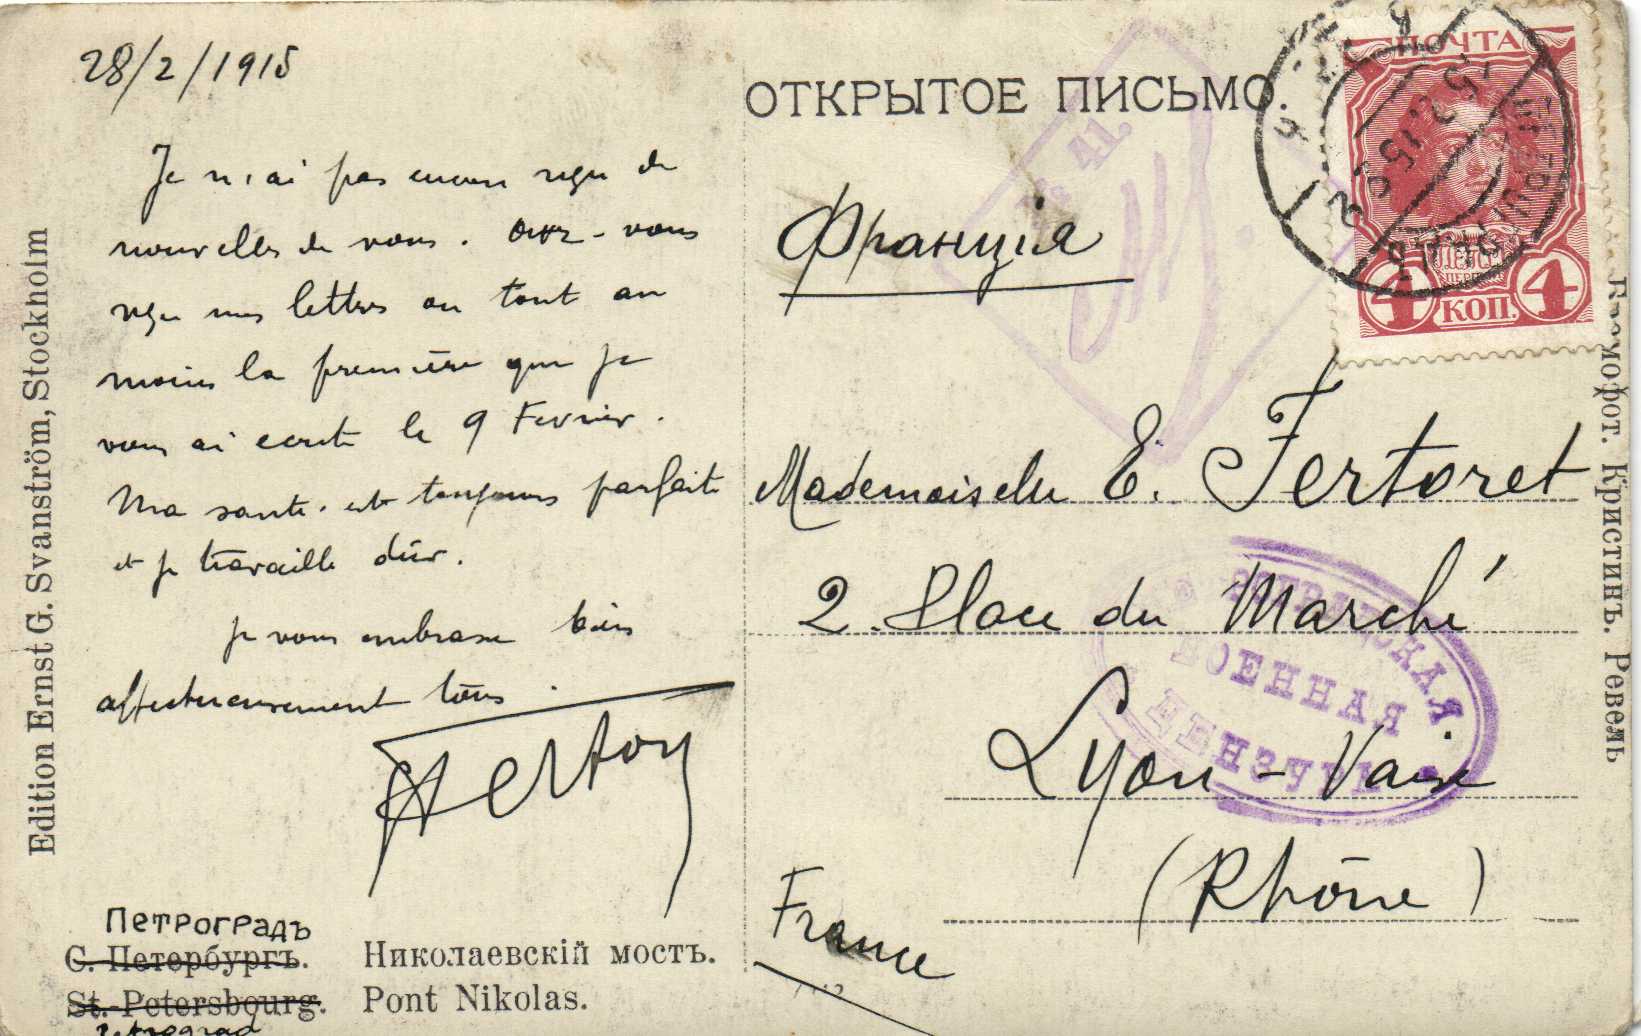 28/2/1915
Je n'ai pas encore reçu de
nouvelles de vous. Avez-vous
reçu mes lettres ou tout au
moins la première que je
vous ai ecrite le 9 Fevrier.
Ma sante est toujours parfaite
et je travaille dûr.
je vous embrasse bien
affectueusement tous.
ОТКРЫТОЕ ПИСЬМО.
Франція
Mademoiselle E. Fertoret
2. Place du Marché
Lyon - Vaise
(Rhône)
France
ПОЧТА
4 КОП. 4
15.2.15
№ 41.
ПЕТРОГРАДСКАЯ
ВОЕННАЯ
ЦЕНЗУРА
Edition Ernst G. Svanström, Stockholm
Кристинъ. Ревель
ПЕТРОГРАДЪ
С. Петербургъ. Николаевскій мостъ.
St.-Petersbourg. Pont Nikolas.
Petrograd